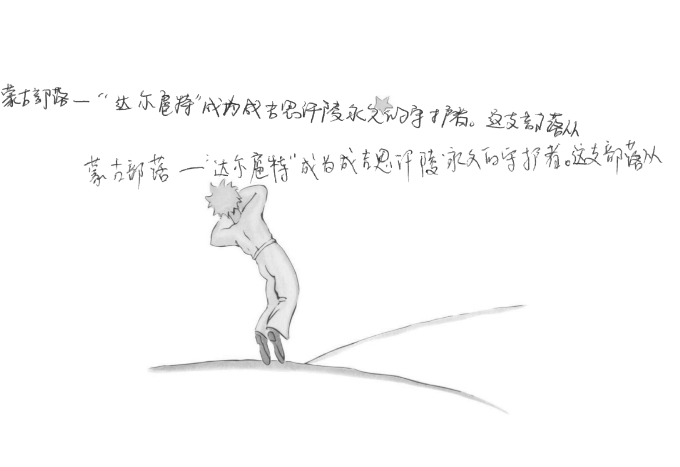 蒙古部落—“达尔扈特”成为成吉思汗陵永久的守护者。这支部落从
蒙古部落—“达尔扈特”成为成吉思汗陵永久的守护者。这支部落从